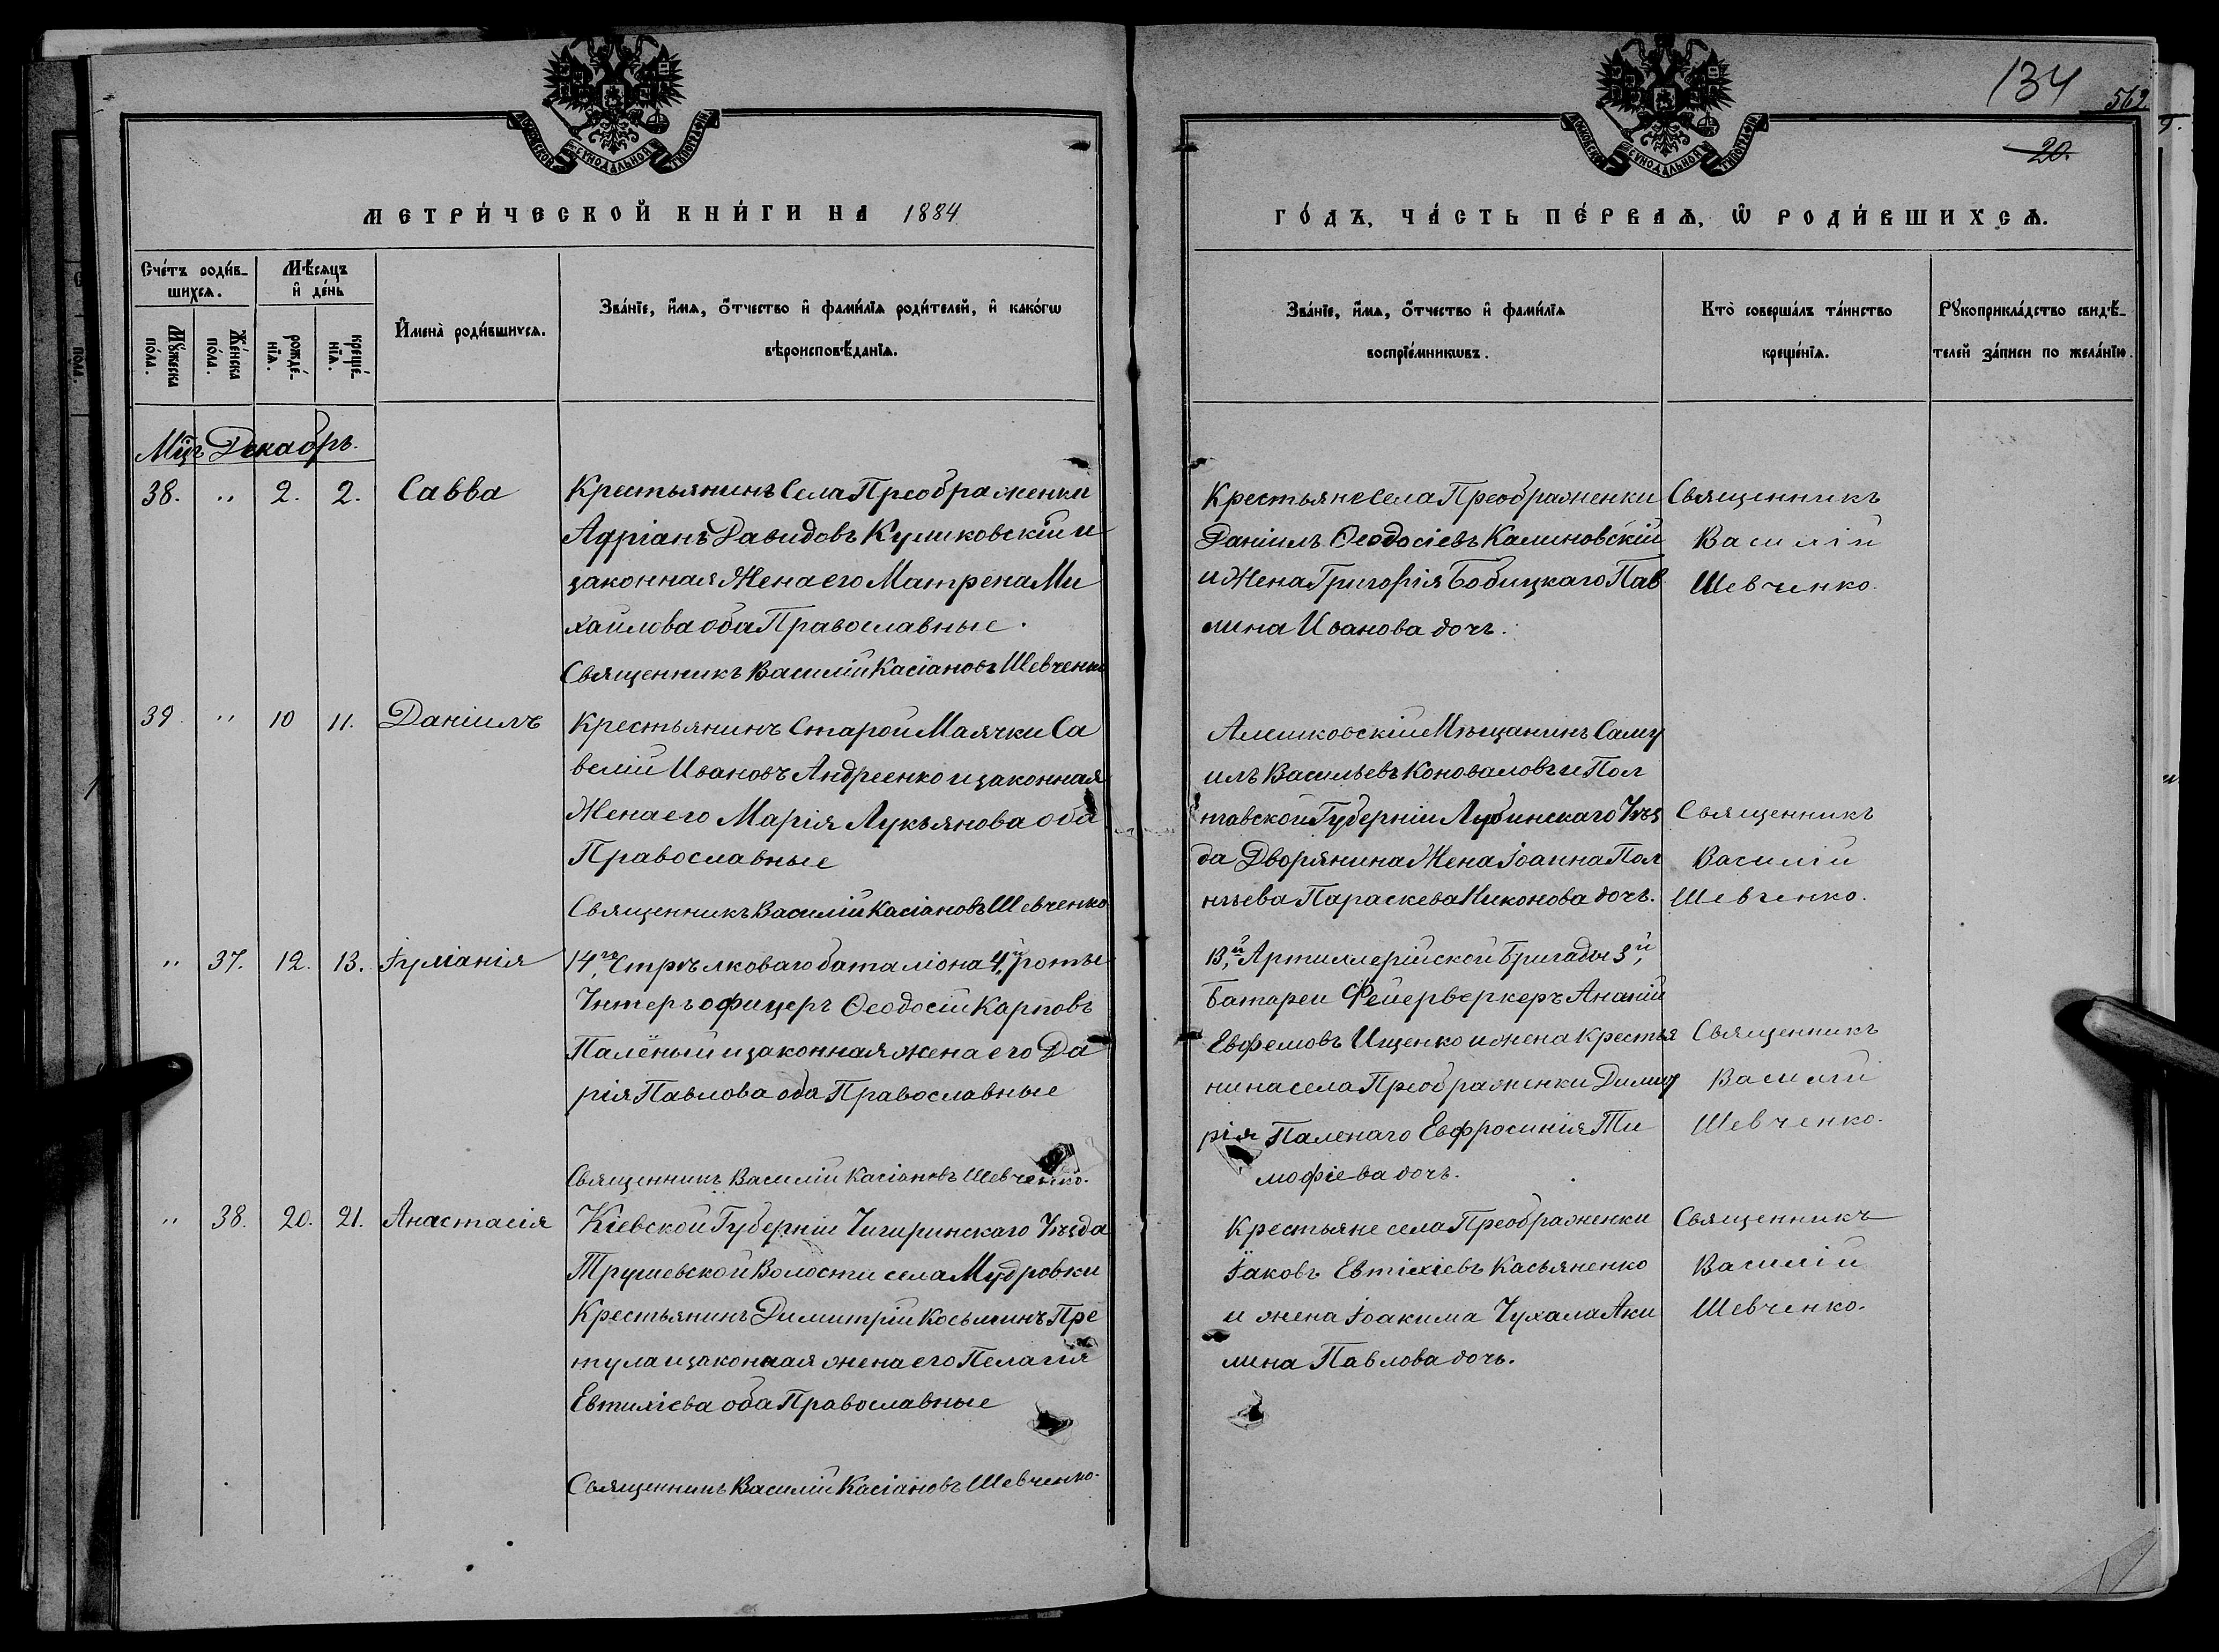 134
569
20.
МОСКОВСКОЙ СѴНОДАЛЬНОЙ ТИПОГРАФІИ
МОСКОВСКОЙ СѴНОДАЛЬНОЙ ТИПОГРАФІИ
МЕТРИ́ЧЕСКОЙ КНИ́ГИ НА 1884
ГО́ДЪ, ЧА́СТЬ ПЕ́РВАѦ, Ѡ РОДИ́ВШИХСѦ.
Сче́тъ роди́в-
шихсѧ.
Мꙋ́жеска
по́ла.
Же́нска
по́ла.
Мѣ́сѧцъ
и де́нь
рожде́-
нїѧ.
креще́-
нїѧ.
Имена̀ роди́вшихсѧ.
Зва́нїе, и́мѧ, о́тчество и фами́лїѧ роди́телей, и како́гѡ
вѣроисповѣ́данїѧ.
Зва́нїе, и́мѧ, о́тчество и фами́лїѧ
воспрїе́мникѡвъ.
Кто̀ соверша́лъ та́инство
креще́нїѧ.
Рꙋкоприкла́дство свидѣ́-
телей за́писи по жела́нїю.
Мцъ Декабрь.
38. " 2. 2. Савва
Крестьянинъ Села Преображенки
Адріанъ Давидовъ Куликовскій и
законная Жена его Матрена Ми
хайлова оба Православные.
Священникъ Василій Касіановъ Шевченко
Крестьяне Села Преображенки
Даніилъ Ѳеодосіевъ Калиновскій
и Жена Григорія Бобицкаго Пав
лина Иванова дочь.
Священникъ
Василій
Шевченко.
39. " 10 11. Даніилъ
Крестьянинъ Старой Маячки Са
велій Ивановъ Андреенко и законная
Жена его Марія Лукьянова оба
Православные
Священникъ Василій Касіановъ Шевченко
Алешковскій Мѣщанинъ Саму
илъ Васильевъ Коноваловъ и Пол
тавской Губерніи Лубинскаго Уѣз
да Дворянина Жена Іоанна Пол
нѣева Параскева Никонова дочь.
Священникъ
Василій
Шевченко.
" 37. 12. 13. Іуліанія
14го Стрѣлковаго баталіона 4й роты
Унтеръ офицеръ Ѳеодосій Карповъ
Палёный и законная жена его Да
рія Павлова оба Православные
Священникъ Василій Касіановъ Шевченко.
13й Артиллерійской Бригады 3й
Батареи Фейерверкеръ Ананій
Евфемовъ Ищенко и жена Крестья
нина села Преображенки Димит
рія Паленаго Евфросинія Ти
мофіева дочь.
Священникъ
Василій
Шевченко.
" 38. 20. 21. Анастасія
Кіевской Губерніи Чигиринскаго Уѣзда
Трушевской Волости села Мудровки
Крестьянинъ Димитрій Косьминъ Пре
тула и законная жена его Пелагія
Евтихіева оба Православные
Священникъ Василій Касіановъ Шевченко.
Крестьяне села Преображенки
Іаковъ Евтихіевъ Касьяненко
и жена Іоакима Чухала Аки
лина Павлова дочь.
Священникъ
Василій
Шевченко.